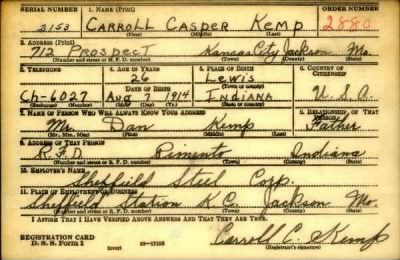 SERIAL NUMBER 1. NAME (Print) ORDER NUMBER
2153 CARROLL CASPER KEMP 2880
(First) (Middle) (Last)
2. ADDRESS (Print)
712 PROSPECT Kansas City Jackson Mo.
(Number and street or R. F. D. number) (Town) (County) (State)
3. TELEPHONE 4. AGE IN YEARS 5. PLACE OF BIRTH 6. COUNTRY OF CITIZENSHIP
26 Lewis
DATE OF BIRTH (Town or county)
Ch-6027 Aug 7 1914 Indiana U.S.A.
(Mo.) (Day) (Yr.) (State or country)
7. NAME OF PERSON WHO WILL ALWAYS KNOW YOUR ADDRESS 8. RELATIONSHIP OF THAT PERSON
Mr. Dan Kemp Father
(Mr., Mrs., Miss) (First) (Middle) (Last)
9. ADDRESS OF THAT PERSON
R.F.D. Pimento Indiana
(Number and street or R. F. D. number) (Town) (County) (State)
10. EMPLOYER'S NAME
Sheffield Steel Corp.
11. PLACE OF EMPLOYMENT OR BUSINESS
Sheffield Station K.C. Jackson Mo.
(Number and street or R. F. D. number) (Town) (County) (State)
I AFFIRM THAT I HAVE VERIFIED ABOVE ANSWERS AND THAT THEY ARE TRUE.
REGISTRATION CARD
D. S. S. Form 1 (over) Carroll C. Kemp
(Registrant's signature)